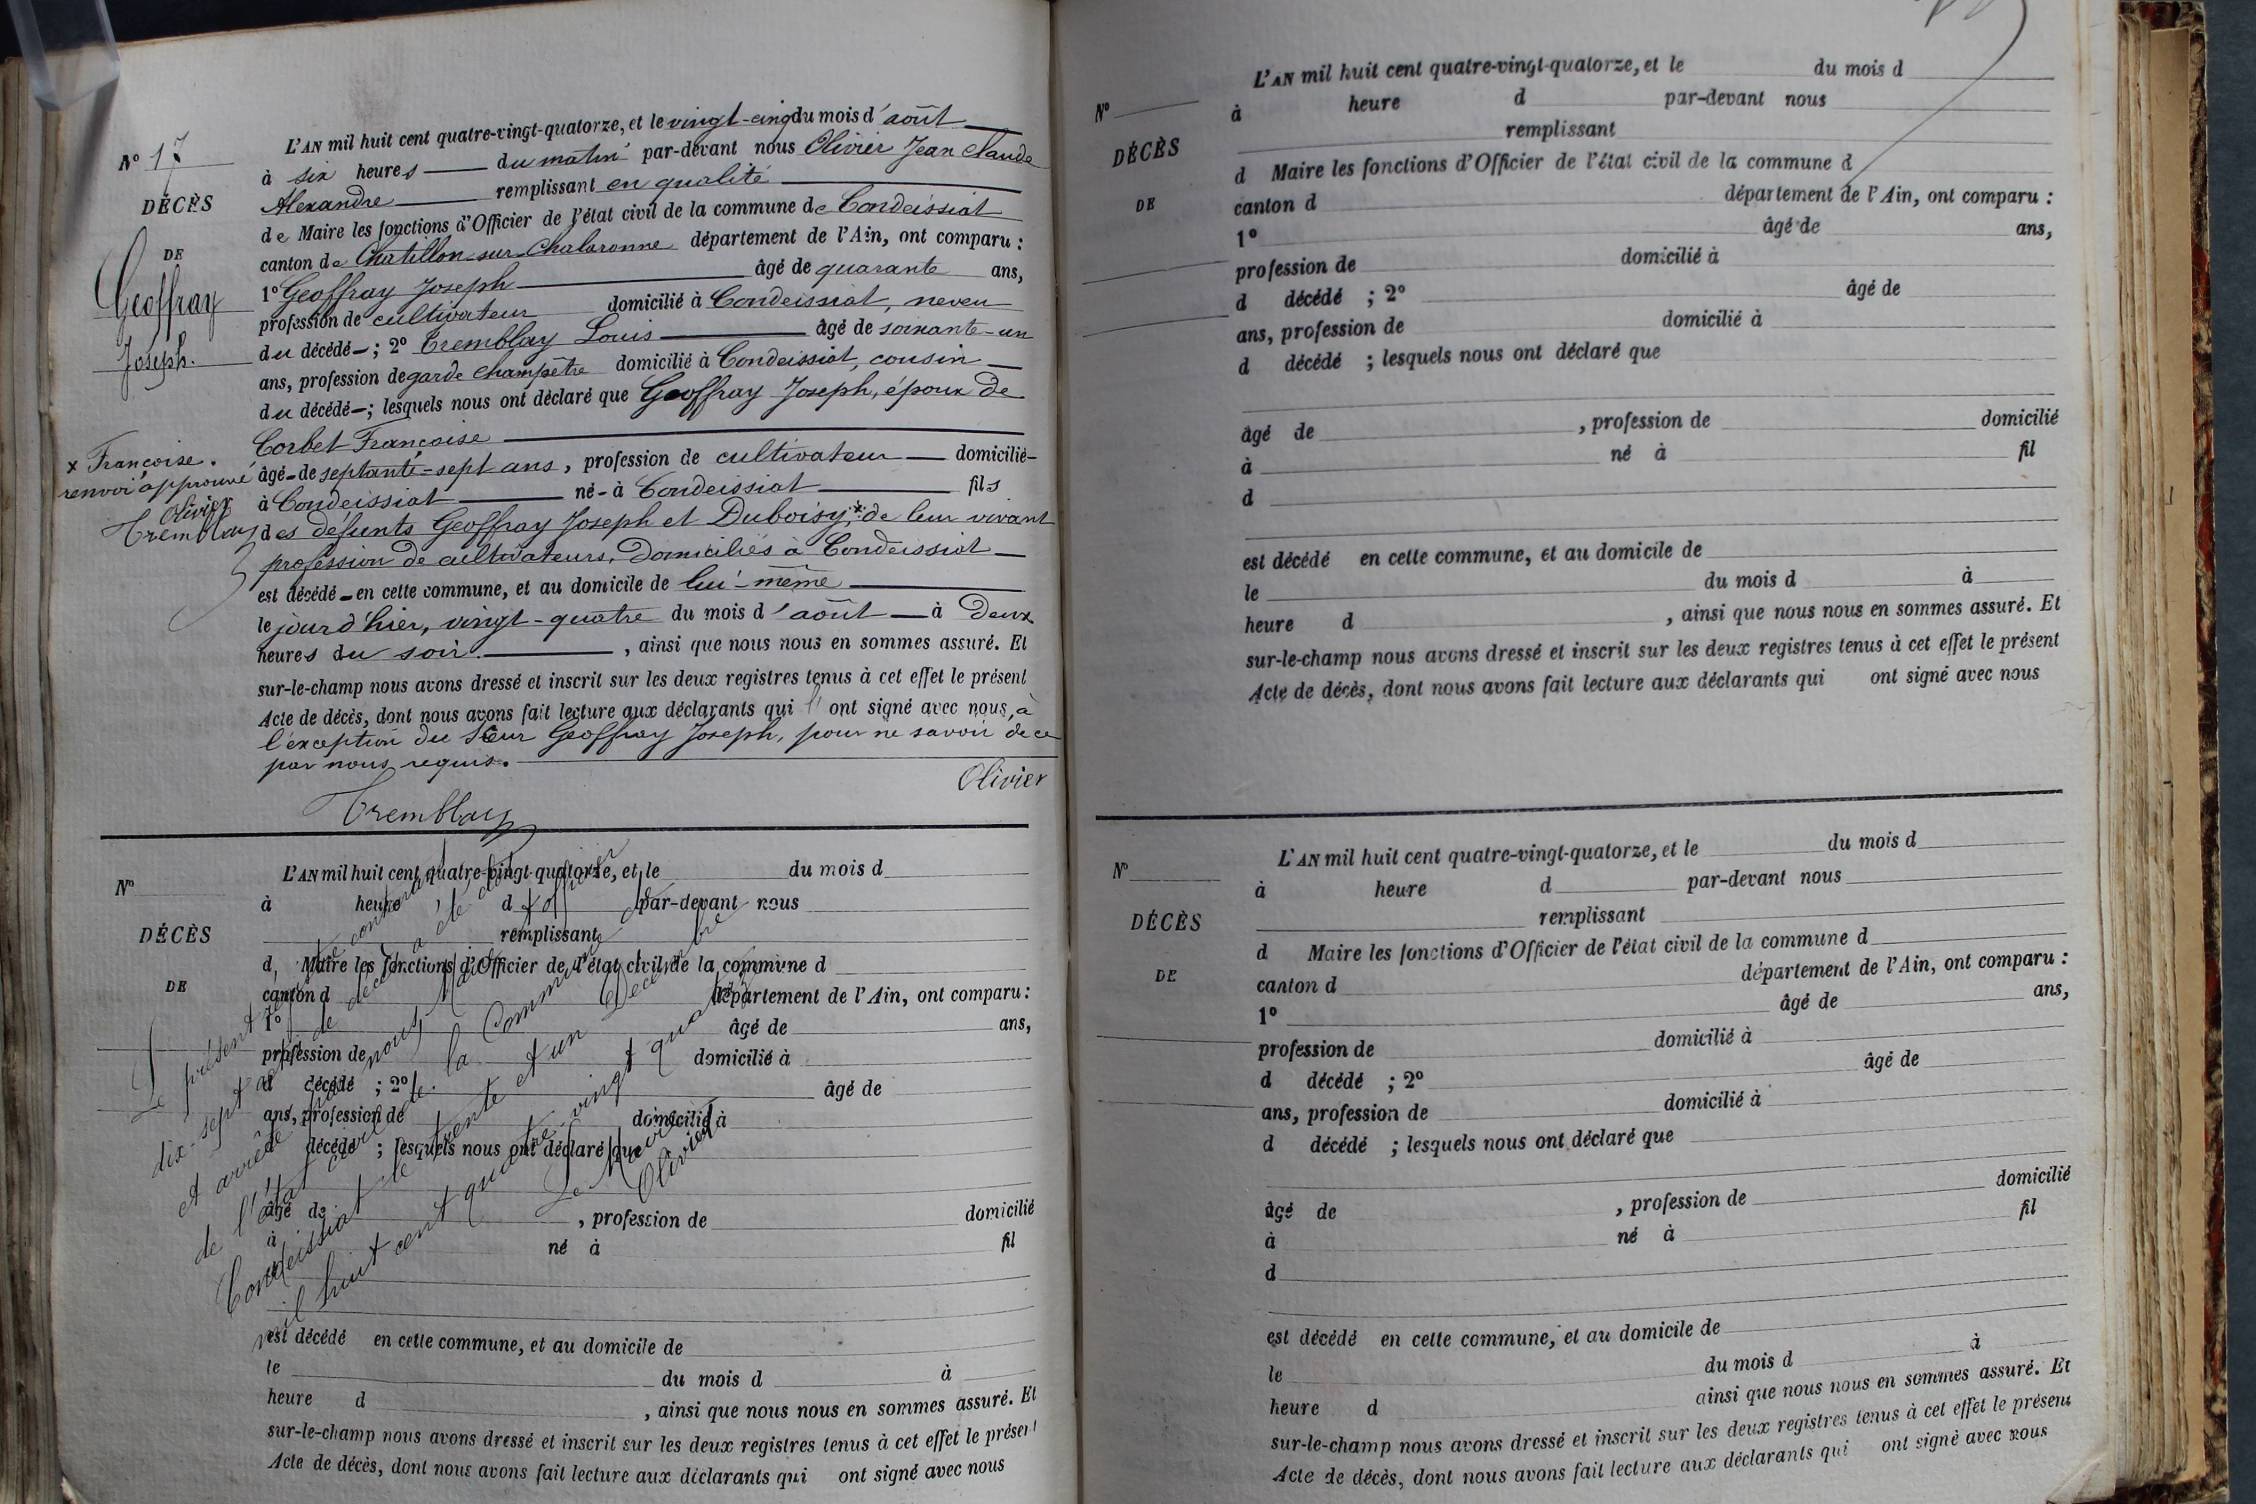 L'AN mil huit cent quatre-vingt-quatorze, et le vingt-cinq du mois d'août
N° 17
à six heures du matin par-devant nous Olivier Jean Claude
Alexandre remplissant en qualité
DÉCÈS
de Maire les fonctions d'Officier de l'état civil de la commune de Condeissiat
DE
canton de Chatillon-sur-Chalaronne département de l'Ain, ont comparu :
Geoffray
Joseph.
1° Geoffray Joseph âgé de quarante ans,
profession de cultivateur domicilié à Condeissiat, neveu
du décédé ; 2° Tremblay Louis âgé de soixante-un
ans, profession de garde champêtre domicilié à Condeissiat, cousin
du décédé ; lesquels nous ont déclaré que Geoffray Joseph, époux de
Corbet Françoise
x Françoise.
renvoi approuvé
Olivier
Tremblay
âgé de septante-sept ans, profession de cultivateur domicilié
à Condeissiat né à Condeissiat fils
des défunts Geoffray Joseph et Duboisy x, de leur vivant
profession de cultivateurs, domiciliés à Condeissiat
est décédé en cette commune, et au domicile de lui-même
le jour d'hier, vingt-quatre du mois d'août à deux
heures du soir. , ainsi que nous nous en sommes assuré. Et
sur-le-champ nous avons dressé et inscrit sur les deux registres tenus à cet effet le présent
Acte de décès, dont nous avons fait lecture aux déclarants qui l' ont signé avec nous, à
l'exception du sieur Geoffray Joseph, pour ne savoir de ce
par nous requis.
Olivier
Tremblay
L'AN mil huit cent quatre-vingt-quatorze, et le du mois d
N°
à heure d par-devant nous
remplissant
DÉCÈS
d Maire les fonctions d'Officier de l'état civil de la commune d
DE
canton d département de l'Ain, ont comparu :
1° âgé de ans,
profession de domicilié à
d décédé ; 2° âgé de
ans, profession de domicilié à
d décédé ; lesquels nous ont déclaré que
âgé de , profession de domicilié
à né à fil
d
est décédé en cette commune, et au domicile de
le du mois d à
heure d , ainsi que nous nous en sommes assuré. Et
sur-le-champ nous avons dressé et inscrit sur les deux registres tenus à cet effet le présent
Acte de décès, dont nous avons fait lecture aux déclarants qui ont signé avec nous
Le présent registre contenant
dix-sept actes de décès a été clos
et arrêté par nous, Maire, officier
de l'état civil de la Commune de
Condeissiat le trente et un Décembre
mil huit cent quatre-vingt quatorze
Le Maire
Olivier
L'AN mil huit cent quatre-vingt-quatorze, et le du mois d
N°
à heure d par-devant nous
remplissant
DÉCÈS
d Maire les fonctions d'Officier de l'état civil de la commune d
DE
canton d département de l'Ain, ont comparu :
1° âgé de ans,
profession de domicilié à
d décédé ; 2° âgé de
ans, profession de domicilié à
d décédé ; lesquels nous ont déclaré que
âgé de , profession de domicilié
à né à fil
d
est décédé en cette commune, et au domicile de
le du mois d à
heure d , ainsi que nous nous en sommes assuré. Et
sur-le-champ nous avons dressé et inscrit sur les deux registres tenus à cet effet le présent
Acte de décès, dont nous avons fait lecture aux déclarants qui ont signé avec nous
L'AN mil huit cent quatre-vingt-quatorze, et le du mois d
N°
à heure d par-devant nous
remplissant
DÉCÈS
d Maire les fonctions d'Officier de l'état civil de la commune d
DE
canton d département de l'Ain, ont comparu :
1° âgé de ans,
profession de domicilié à
d décédé ; 2° âgé de
ans, profession de domicilié à
d décédé ; lesquels nous ont déclaré que
âgé de , profession de domicilié
à né à fil
d
est décédé en cette commune, et au domicile de
le du mois d à
heure d ainsi que nous nous en sommes assuré. Et
sur-le-champ nous avons dressé et inscrit sur les deux registres tenus à cet effet le présent
Acte de décès, dont nous avons fait lecture aux déclarants qui ont signé avec nous